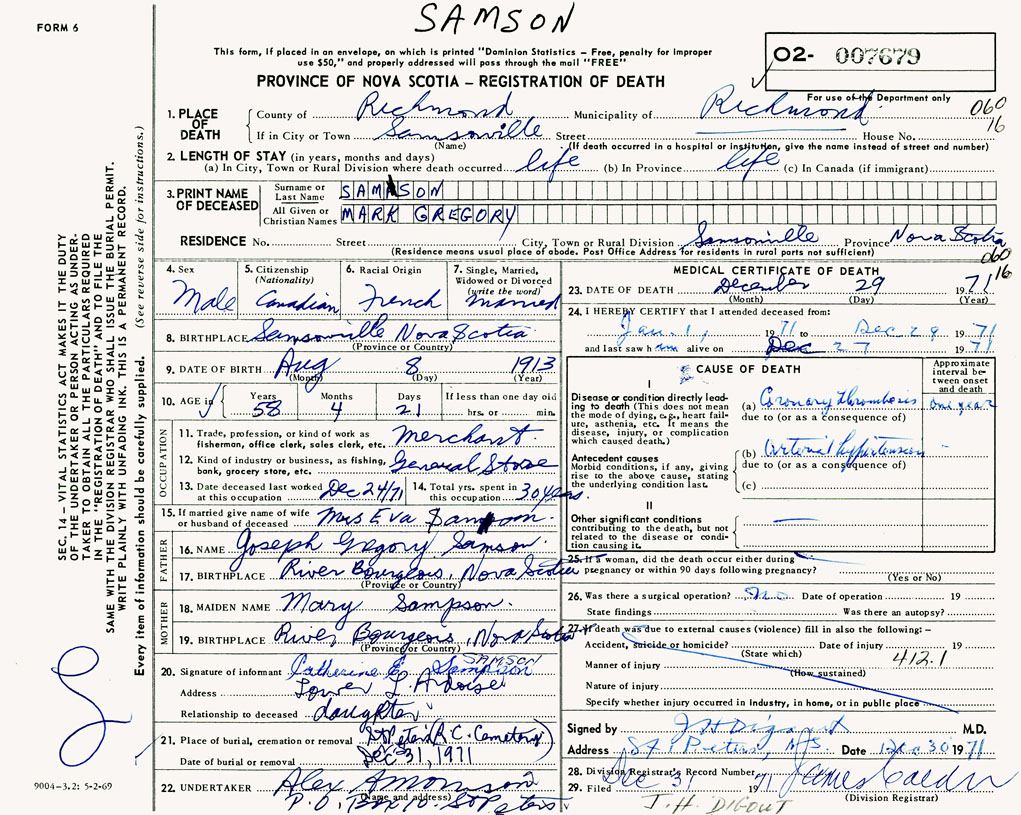 FORM 6
SAMSON
This form, if placed in an envelope, on which is printed "Dominion Statistics – Free, penalty for improper
use $50," and properly addressed will pass through the mail "FREE"
O2- 007679
PROVINCE OF NOVA SCOTIA – REGISTRATION OF DEATH
For use of the Department only
060
16
1. PLACE OF DEATH
County of Richmond Municipality of Richmond
If in City or Town Samsonville Street House No.
(Name) (If death occurred in a hospital or institution, give the name instead of street and number)
2. LENGTH OF STAY (in years, months and days)
(a) In City, Town or Rural Division where death occurred life (b) In Province life (c) In Canada (if immigrant)
3. PRINT NAME OF DECEASED
Surname or Last Name SAMSON
All Given or Christian Names MARK GREGORY
RESIDENCE No. Street City, Town or Rural Division Samsonville Province Nova Scotia
(Residence means usual place of abode. Post Office Address for residents in rural parts not sufficient)
060
16
4. Sex
Male
5. Citizenship
(Nationality)
Canadian
6. Racial Origin
French
7. Single, Married,
Widowed or Divorced
(write the word)
Married
8. BIRTHPLACE Samsonville Nova Scotia
(Province or Country)
9. DATE OF BIRTH Aug 8 1913
(Month) (Day) (Year)
10. AGE in
Years 58
Months 4
Days 21
If less than one day old
hrs. or min.
OCCUPATION
11. Trade, profession or kind of work as
fisherman, office clerk, sales clerk, etc. Merchant.
12. Kind of industry or business, as fishing,
bank, grocery store, etc. General Store
13. Date deceased last worked
at this occupation Dec 24/71
14. Total yrs. spent in
this occupation 30 years.
15. If married give name of wife
or husband of deceased Mrs Eva Samson
FATHER
16. NAME Joseph Gregory Samson.
17. BIRTHPLACE River Bourgeois, Nova Scotia
(Province or Country)
MOTHER
18. MAIDEN NAME Mary Sampson.
19. BIRTHPLACE River Bourgeois, Nova Scotia
(Province or Country)
SAMSON
20. Signature of informant Catherine E. Sampson
Address Lower L'Ardoise
Relationship to deceased daughter
21. Place of burial, cremation or removal St Peter's (R.C. Cemetery)
Date of burial or removal Dec 31, 1971
22. UNDERTAKER Alex
(Name and address)
P.O. Box St Peters
MEDICAL CERTIFICATE OF DEATH
23. DATE OF DEATH December 29 1971
(Month) (Day) (Year)
24. I HEREBY CERTIFY that I attended deceased from:
Jan 1, 1971 to Dec 29 1971
and last saw him alive on Dec 27 1971
CAUSE OF DEATH
Approximate
interval be-
tween onset
and death
I
Disease or condition directly lead-
ing to death (This does not mean
the mode of dying, e.g., heart fail-
ure, asthenia, etc. It means the
disease, injury, or complication
which caused death.)
(a) Coronary thrombosis one year
due to (or as a consequence of)
Antecedent causes
Morbid conditions, if any, giving
rise to the above cause, stating
the underlying condition last.
(b) Arterial hypertension
due to (or as a consequence of)
(c)
II
Other significant conditions
contributing to the death, but not
related to the disease or condi-
tion causing it.
25. If a woman, did the death occur either during
pregnancy or within 90 days following pregnancy?
(Yes or No)
26. Was there a surgical operation? no Date of operation 19
State findings Was there an autopsy?
27. If death was due to external causes (violence) fill in also the following: –
Accident, suicide or homicide? Date of injury 19
(State which)
412.1
Manner of injury
(How sustained)
Nature of injury
Specify whether injury occurred in industry, in home, or in public place
Signed by J H Digout M.D.
Address St Peters, N S Date Dec 30 1971
28. Division Registrar's Record Number
29. Filed Dec 31 1971 James
(Division Registrar)
J. H. DIGOUT
SEC. 14 – VITAL STATISTICS ACT MAKES IT THE DUTY
OF THE UNDERTAKER OR PERSON ACTING AS UNDER-
TAKER TO OBTAIN ALL THE PARTICULARS REQUIRED
IN THE "REGISTRATION OF DEATH" AND TO FILE THE
SAME WITH THE DIVISION REGISTRAR WHO SHALL ISSUE THE BURIAL PERMIT.
WRITE PLAINLY WITH UNFADING INK. THIS IS A PERMANENT RECORD.
Every item of information should be carefully supplied. (See reverse side for instructions.)
9004-3.2: 5-2-69